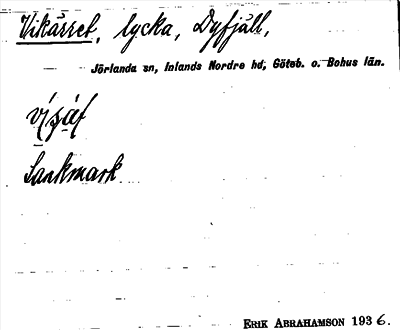 Vikärret, lycka, Dyfjäll,
Jörlanda sn, Inlands Nordre hd, Göteb. o. Bohus län.
Sankmark
ERIK ABRAHAMSON 1936.